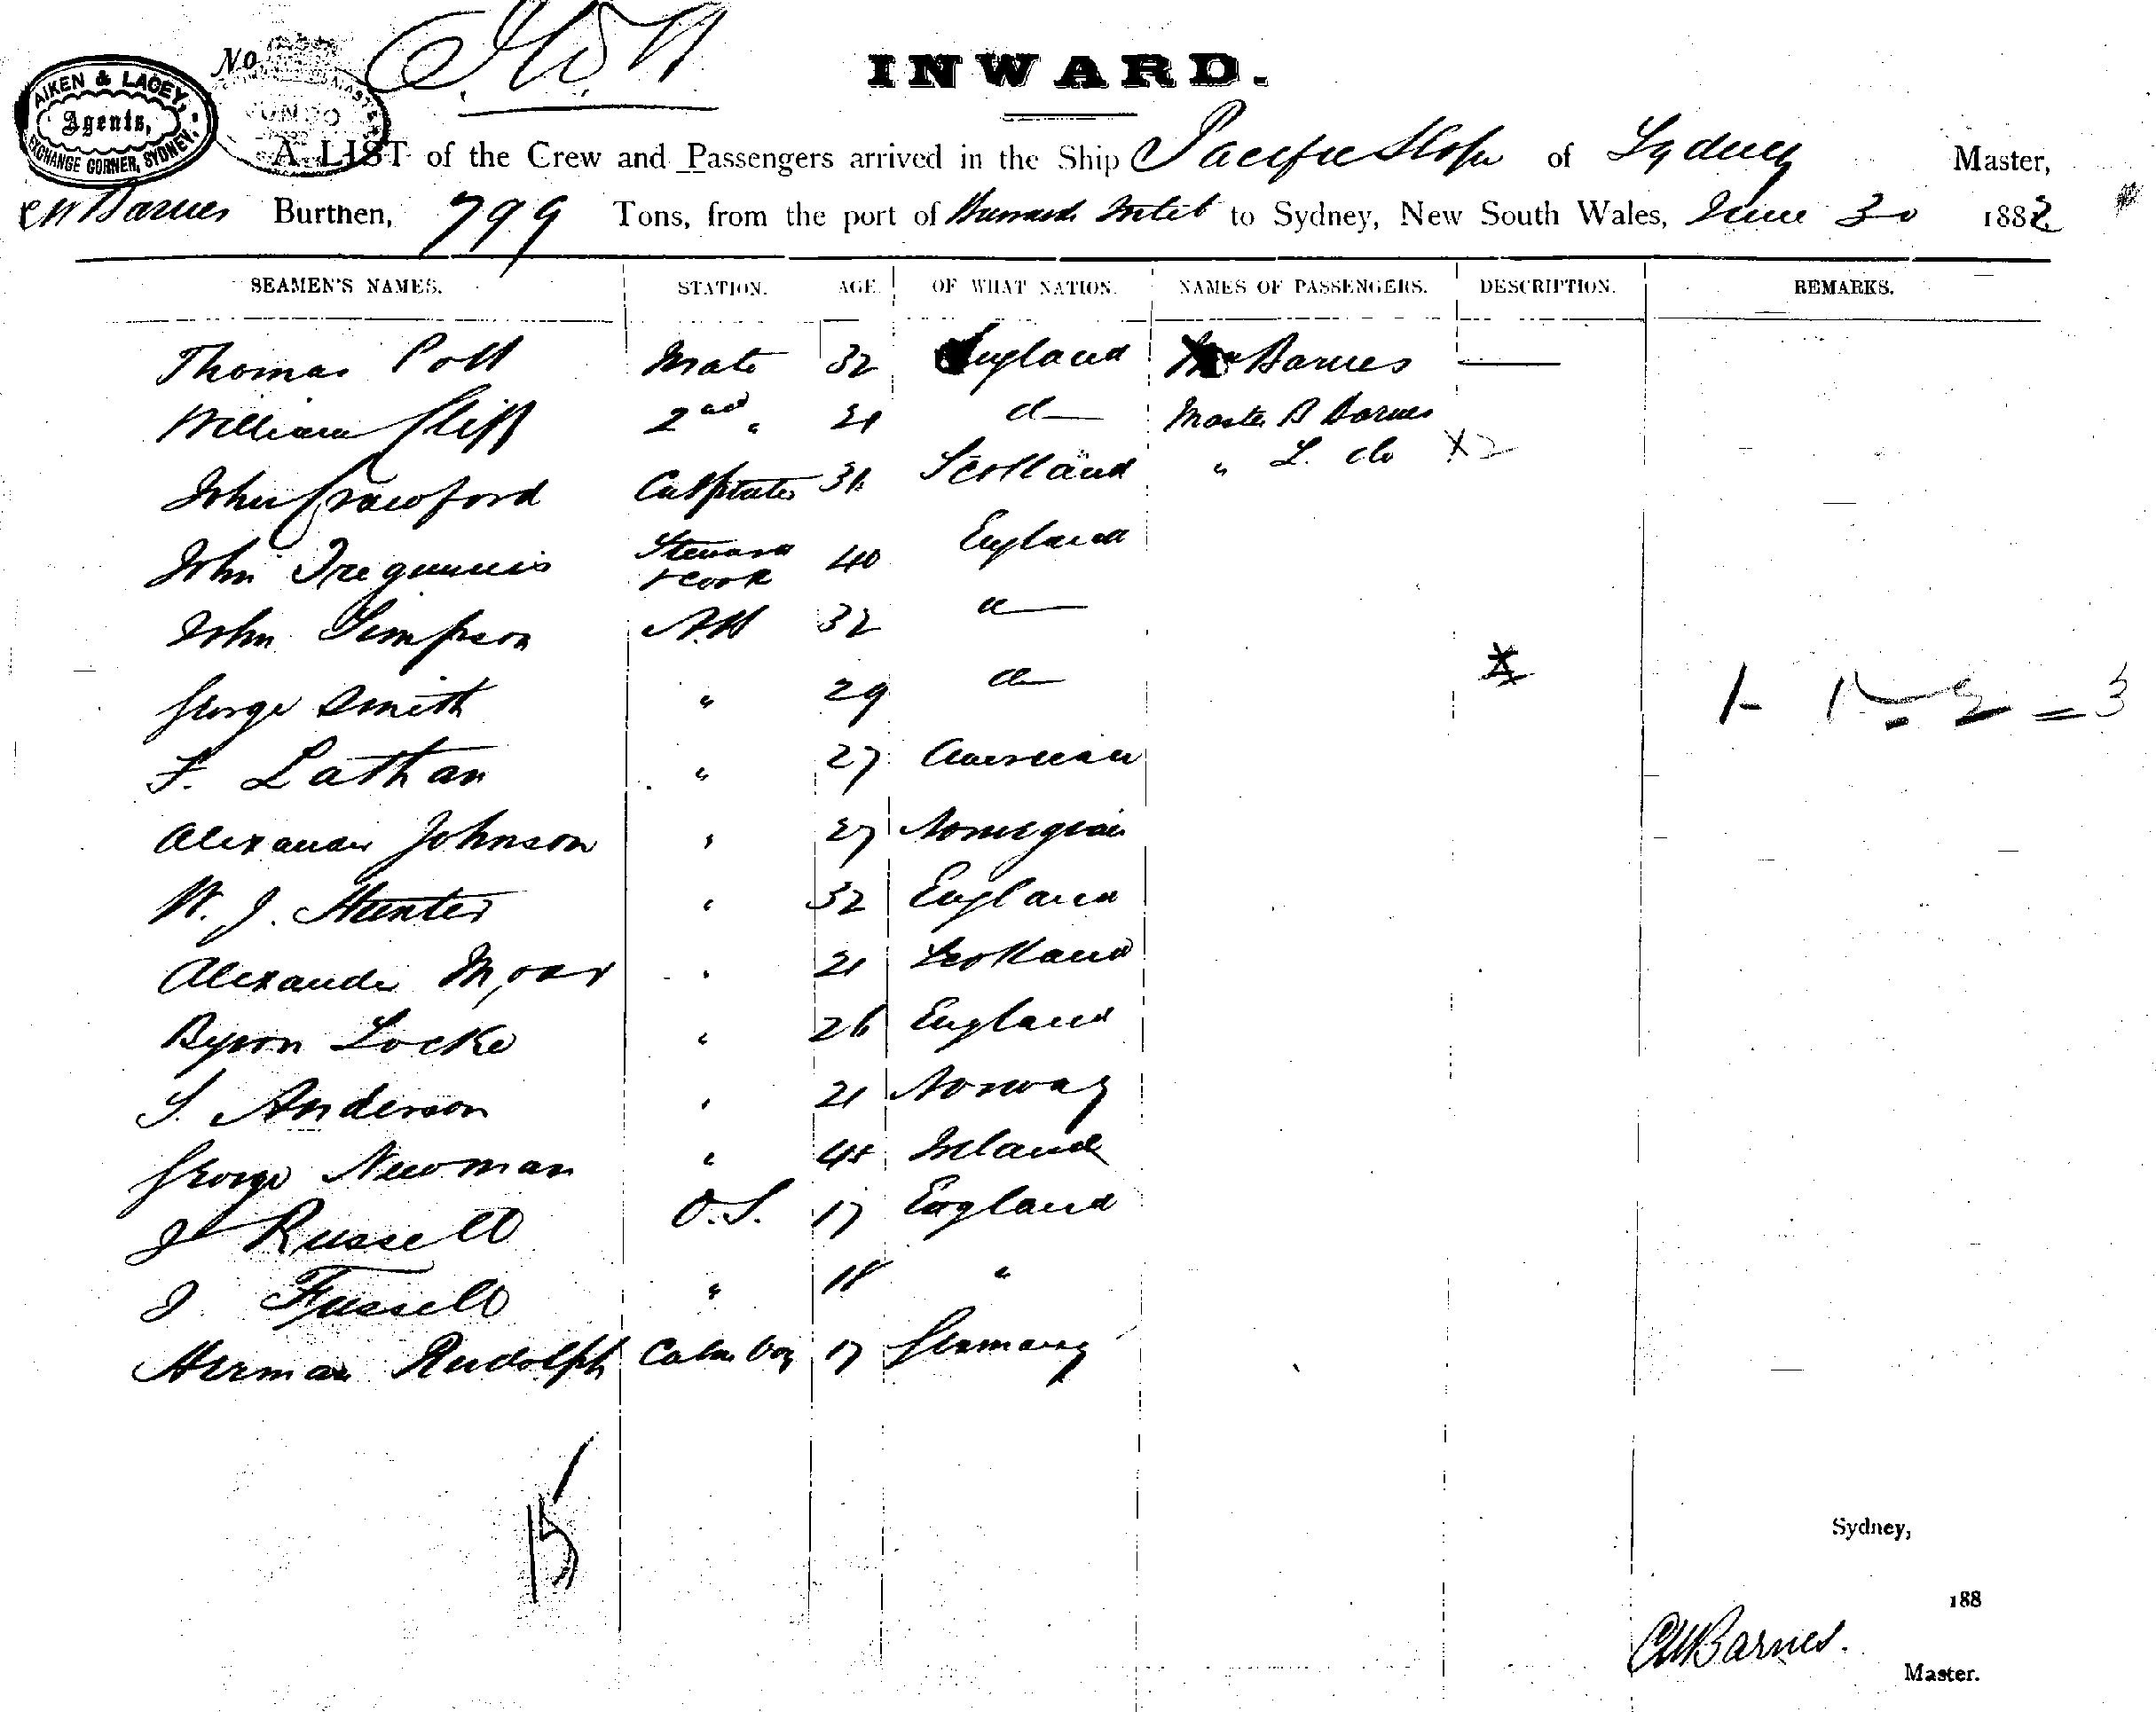 INWARD.
No
AIKEN & LACEY, Agents, EXCHANGE CORNER, SYDNEY.
A LIST of the Crew and Passengers arrived in the Ship Pacific Slope of Sydney Master,
C W Barnes Burthen, 799 Tons, from the port of Burrard Inlet to Sydney, New South Wales, June 30 1882
SEAMEN'S NAMES. STATION. AGE. OF WHAT NATION. NAMES OF PASSENGERS. DESCRIPTION. REMARKS.
Thomas Pott Mate 32 England Mrs Barnes —
William Cliff 2nd " 21 do Master B Barnes
John Crawford 31 Scotland " L. do X2
John Steward & Cook 40 England
John Simpson AB 32 do
George Smith " 29 do
F. Lathan " 27 American
Alexander Johnson " 27 Norwegian
W. J. Hunter " 32 England
Alexander Moar " 21 Scotland
Byron Locke " 26 England
S. Anderson " 21 Norway
George Newman " Ireland
J Russell O.S. 17 England
J. Fussell " 18 "
Herman Rudolph Cabin boy 17 Germany
15
Sydney,
188
CWBarnes.
Master.